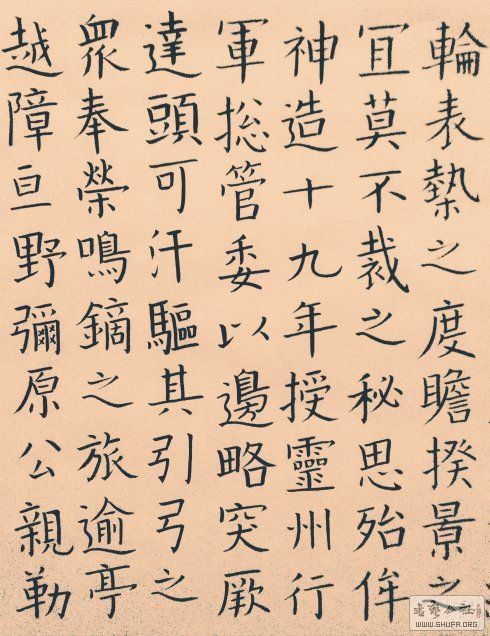 輪表槷之度瞻揆景之
冝莫不裁之秘思殆侔
神造十九年授靈州行
軍総管委以邊略突厥
達頭可汗驅其引弓之
衆奉榮鳴鏑之旅逾亭
越障亘野彌原公親勒
WWW.SHUFA.ORG